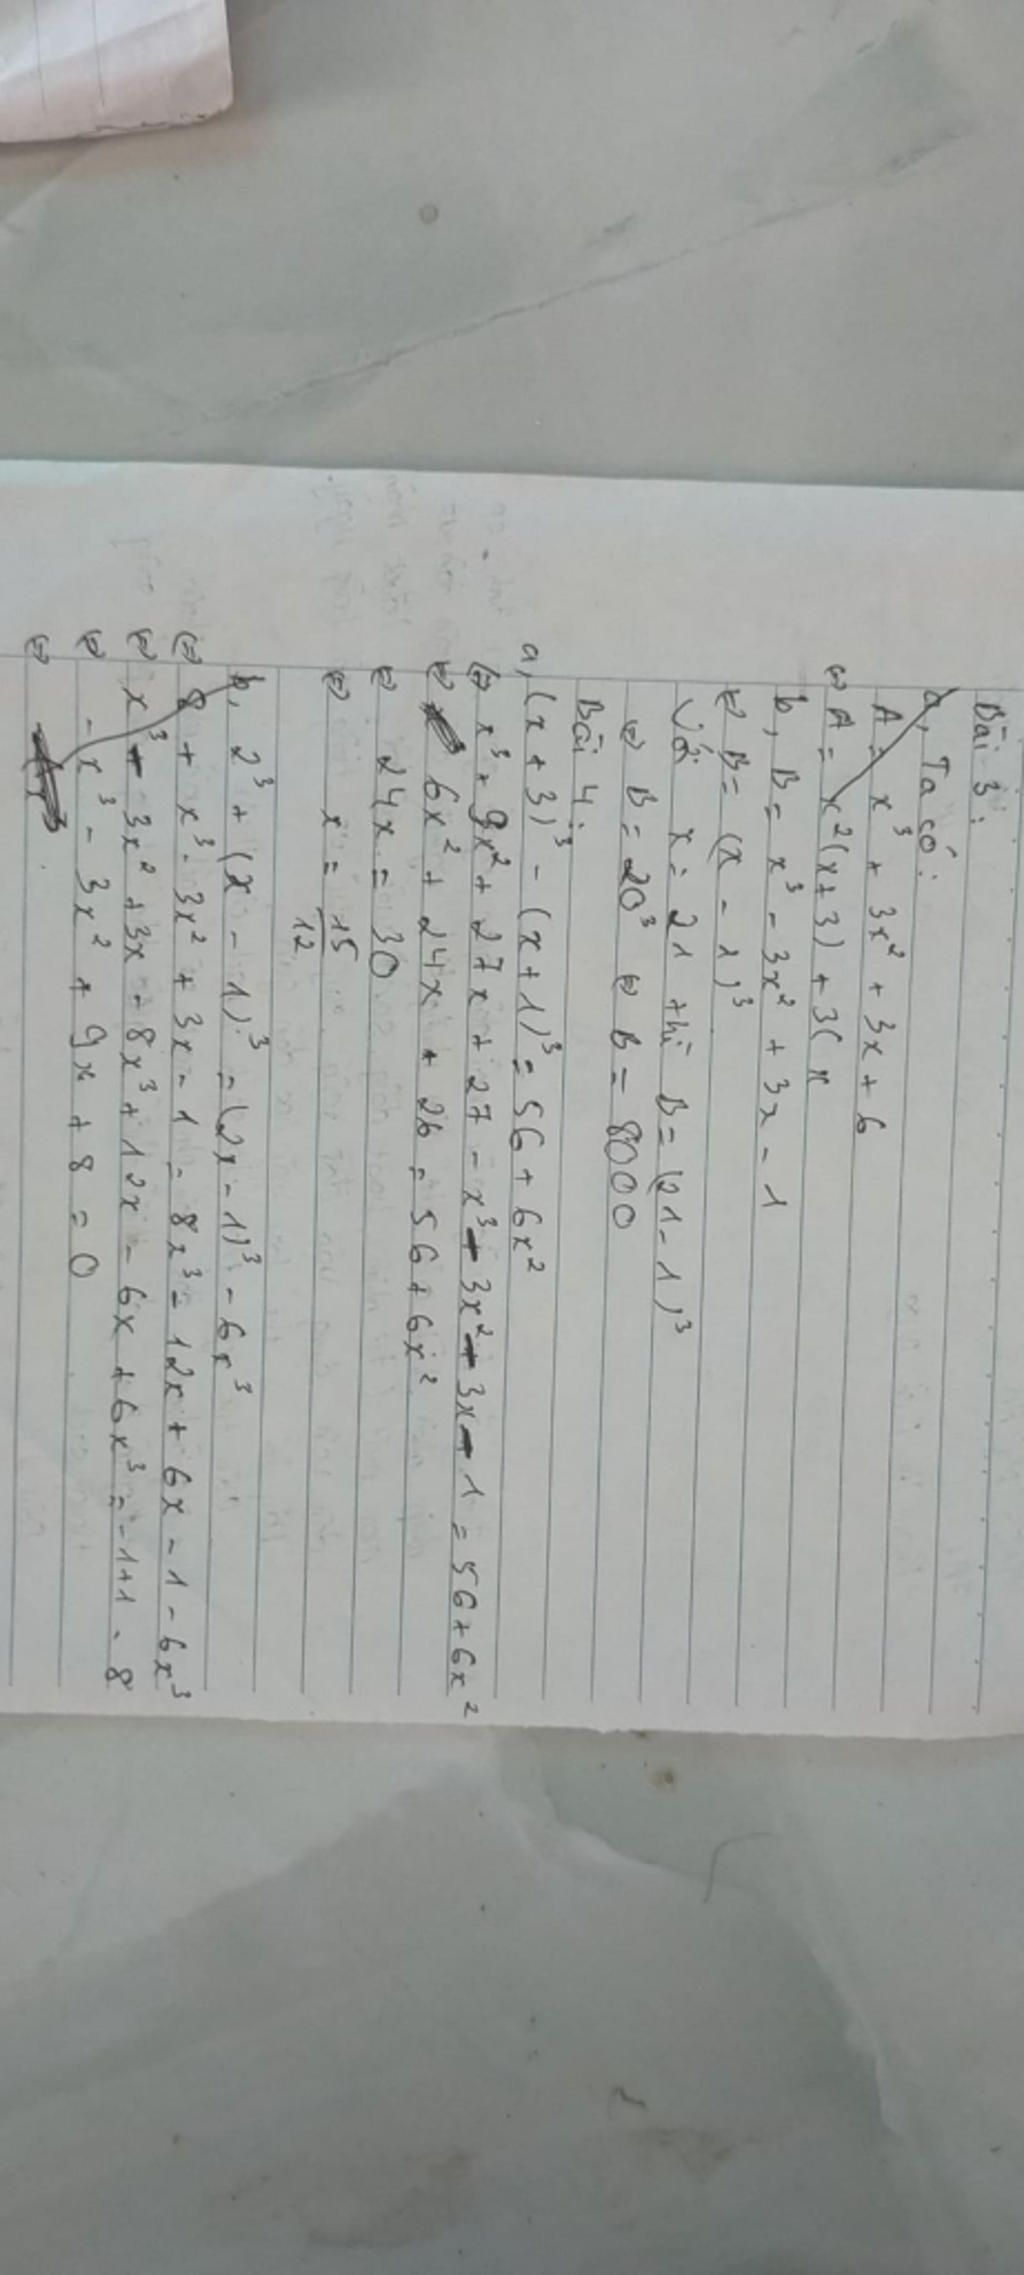 Bài 3:
a, Ta có:
A = x³ + 3x² + 3x + 6
⇔ A = x²(x+3) + 3(x
b, B = x³ - 3x² + 3x - 1
⇔ B = (x - 1)³
Với x = 21 thì B = (21 - 1)³
⇔ B = 20³ ⇔ B = 8000
Bài 4:
a, (x + 3)³ - (x + 1)³ = 56 + 6x²
⇔ x³ + 9x² + 27x + 27 - x³ - 3x² - 3x - 1 = 56 + 6x²
⇔ 6x² + 24x + 26 = 56 + 6x²
⇔ 24x = 30
⇔ x = 15/12
b, 2³ + (x - 1)³ = (2x - 1)³ - 6x³
⇔ 8 + x³ - 3x² + 3x - 1 = 8x³ - 12x + 6x - 1 - 6x³
⇔ x³ - 3x² + 3x - 8x³ + 12x - 6x + 6x³ = -1+1 - 8
⇔ - x³ - 3x² + 9x + 8 = 0
⇔